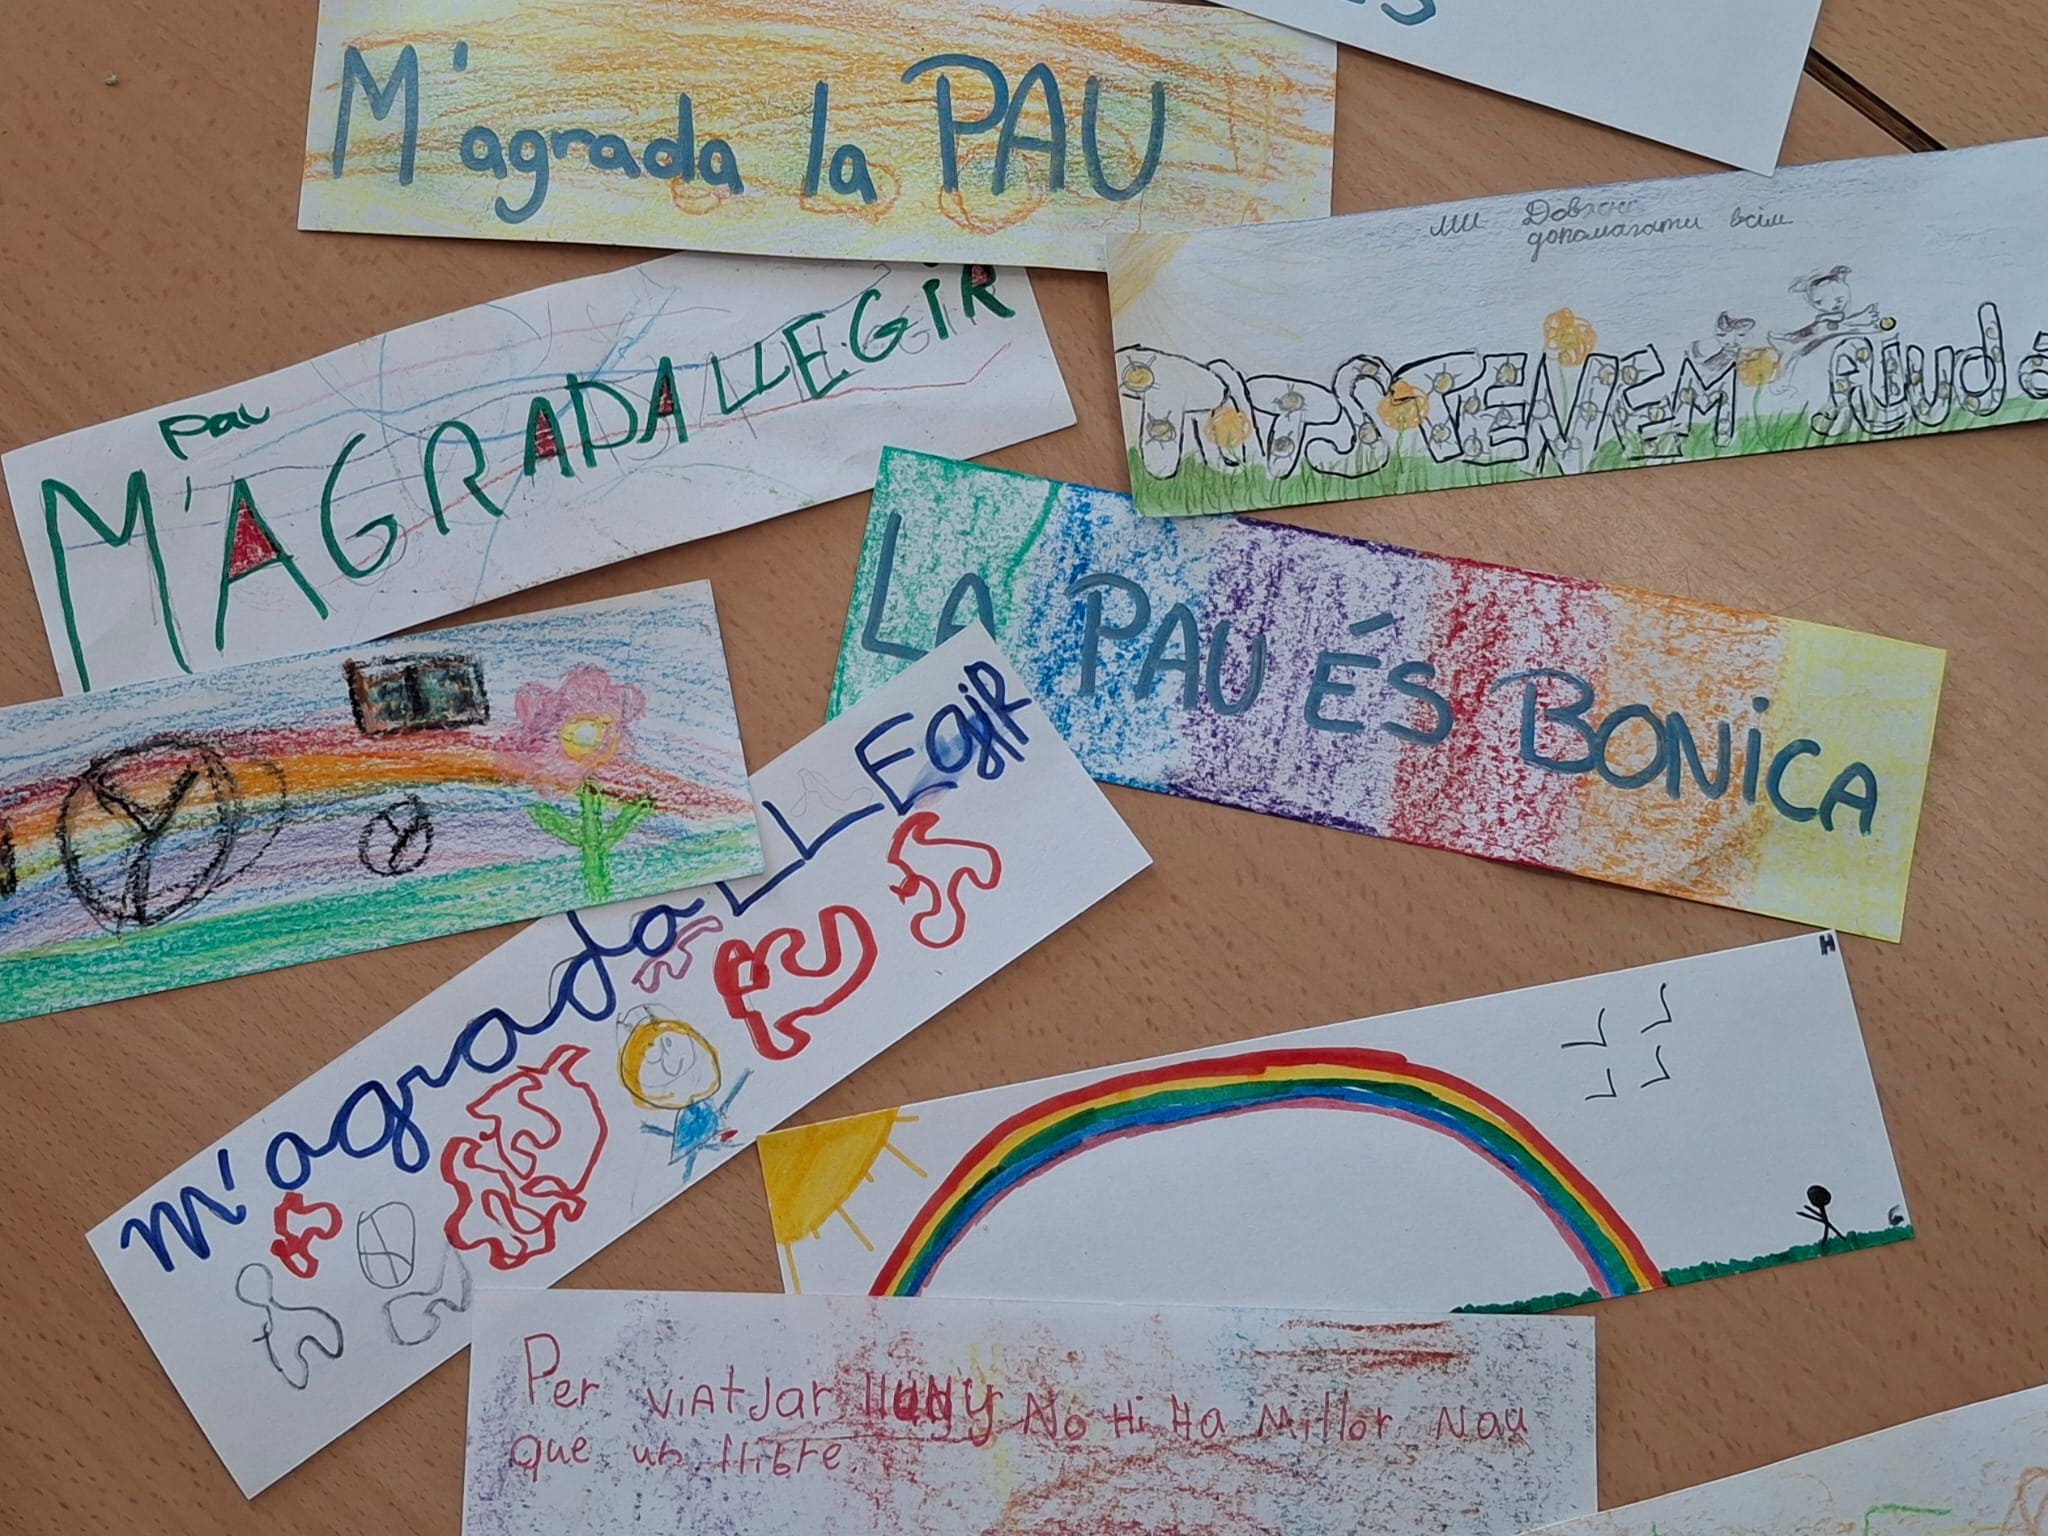 M'agrada la PAU
ми Довжні
допомагати всім
TOTS TENEM AJUDA
pau
M'AGRADA LLEGIR
LA PAU ÉS BONICA
m'agrada LLEgiR
H
G
Per viAtJar llUNy No Hi Ha Millor Nau
que un llibre.